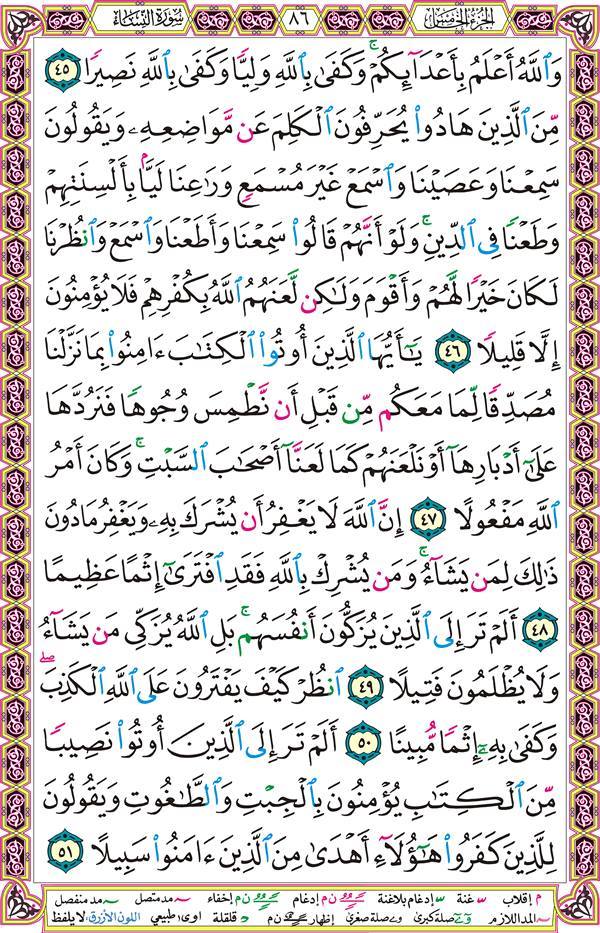 سُورَةُ النِّسَاءِ ٨٦ الجُزْءُ الخَامِسُ
وَٱللَّهُ أَعْلَمُ بِأَعْدَآئِكُمْ ۚ وَكَفَىٰ بِٱللَّهِ وَلِيًّا وَكَفَىٰ بِٱللَّهِ نَصِيرًا ٤٥
مِّنَ ٱلَّذِينَ هَادُوا۟ يُحَرِّفُونَ ٱلْكَلِمَ عَن مَّوَاضِعِهِۦ وَيَقُولُونَ
سَمِعْنَا وَعَصَيْنَا وَٱسْمَعْ غَيْرَ مُسْمَعٍ وَرَٰعِنَا لَيًّۢا بِأَلْسِنَتِهِمْ
وَطَعْنًا فِى ٱلدِّينِ ۚ وَلَوْ أَنَّهُمْ قَالُوا۟ سَمِعْنَا وَأَطَعْنَا وَٱسْمَعْ وَٱنظُرْنَا
لَكَانَ خَيْرًا لَّهُمْ وَأَقْوَمَ وَلَٰكِن لَّعَنَهُمُ ٱللَّهُ بِكُفْرِهِمْ فَلَا يُؤْمِنُونَ
إِلَّا قَلِيلًا ٤٦ يَٰٓأَيُّهَا ٱلَّذِينَ أُوتُوا۟ ٱلْكِتَٰبَ ءَامِنُوا۟ بِمَا نَزَّلْنَا
مُصَدِّقًا لِّمَا مَعَكُم مِّن قَبْلِ أَن نَّطْمِسَ وُجُوهًا فَنَرُدَّهَا
عَلَىٰٓ أَدْبَارِهَآ أَوْ نَلْعَنَهُمْ كَمَا لَعَنَّآ أَصْحَٰبَ ٱلسَّبْتِ ۚ وَكَانَ أَمْرُ
ٱللَّهِ مَفْعُولًا ٤٧ إِنَّ ٱللَّهَ لَا يَغْفِرُ أَن يُشْرَكَ بِهِۦ وَيَغْفِرُ مَا دُونَ
ذَٰلِكَ لِمَن يَشَآءُ ۚ وَمَن يُشْرِكْ بِٱللَّهِ فَقَدِ ٱفْتَرَىٰٓ إِثْمًا عَظِيمًا
٤٨ أَلَمْ تَرَ إِلَى ٱلَّذِينَ يُزَكُّونَ أَنفُسَهُم ۚ بَلِ ٱللَّهُ يُزَكِّى مَن يَشَآءُ
وَلَا يُظْلَمُونَ فَتِيلًا ٤٩ ٱنظُرْ كَيْفَ يَفْتَرُونَ عَلَى ٱللَّهِ ٱلْكَذِبَ ۖ
وَكَفَىٰ بِهِۦٓ إِثْمًا مُّبِينًا ٥٠ أَلَمْ تَرَ إِلَى ٱلَّذِينَ أُوتُوا۟ نَصِيبًا
مِّنَ ٱلْكِتَٰبِ يُؤْمِنُونَ بِٱلْجِبْتِ وَٱلطَّٰغُوتِ وَيَقُولُونَ
لِلَّذِينَ كَفَرُوا۟ هَٰٓؤُلَآءِ أَهْدَىٰ مِنَ ٱلَّذِينَ ءَامَنُوا۟ سَبِيلًا ٥١
م إقلاب غنة إدغام بلاغنة ن م إدغام ن م إخفاء مد متصل مد منفصل
المد اللازم صلة كبرى صلة صغرى إظهار ن م قلقلة اوى طبيعي اللون الأزرق: لا يلفظ